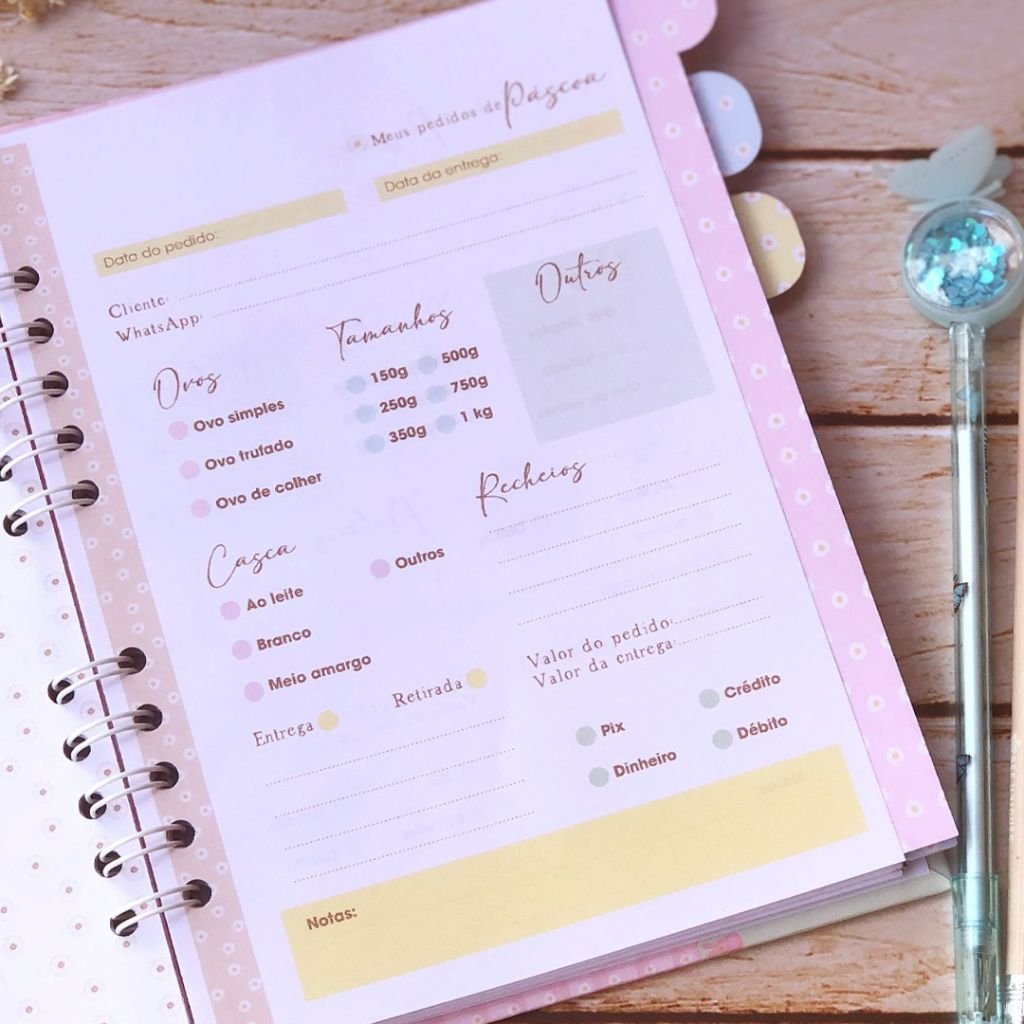 Meus pedidos de Páscoa
Data do pedido:
Data da entrega:
Cliente:
WhatsApp:
Ovos
Ovo simples
Ovo trufado
Ovo de colher
Tamanhos
150g
500g
250g
750g
350g
1 kg
Outros
Casca
Ao leite
Branco
Meio amargo
Outros
Recheios
Entrega
Retirada
Valor do pedido:
Valor da entrega:
Pix
Crédito
Dinheiro
Débito
Notas: